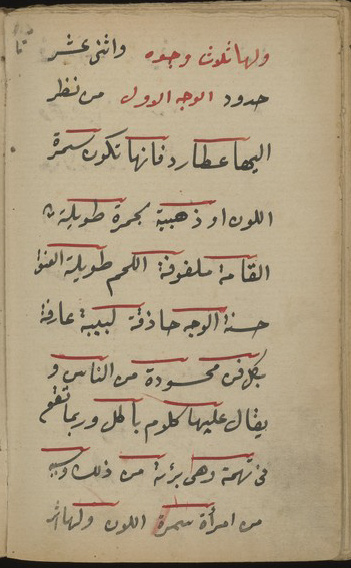 ولها ثلوث وجوه واثنى عشر
حدود الوجه الاول من نظر
اليها عطارد فانها تكون سمرة
اللون او ذهبية بحمرة طويلة
القامة ملفوفة اللحم طويلة العنق
حسنة الوجه حاذقة لبيبة عارفة
بكل فن محسودة من الناس و
يقال عليها كلوم باطل وربما تقع
فى تهمة وهى برئة من ذلك
من امرأة سمرة اللون ولها